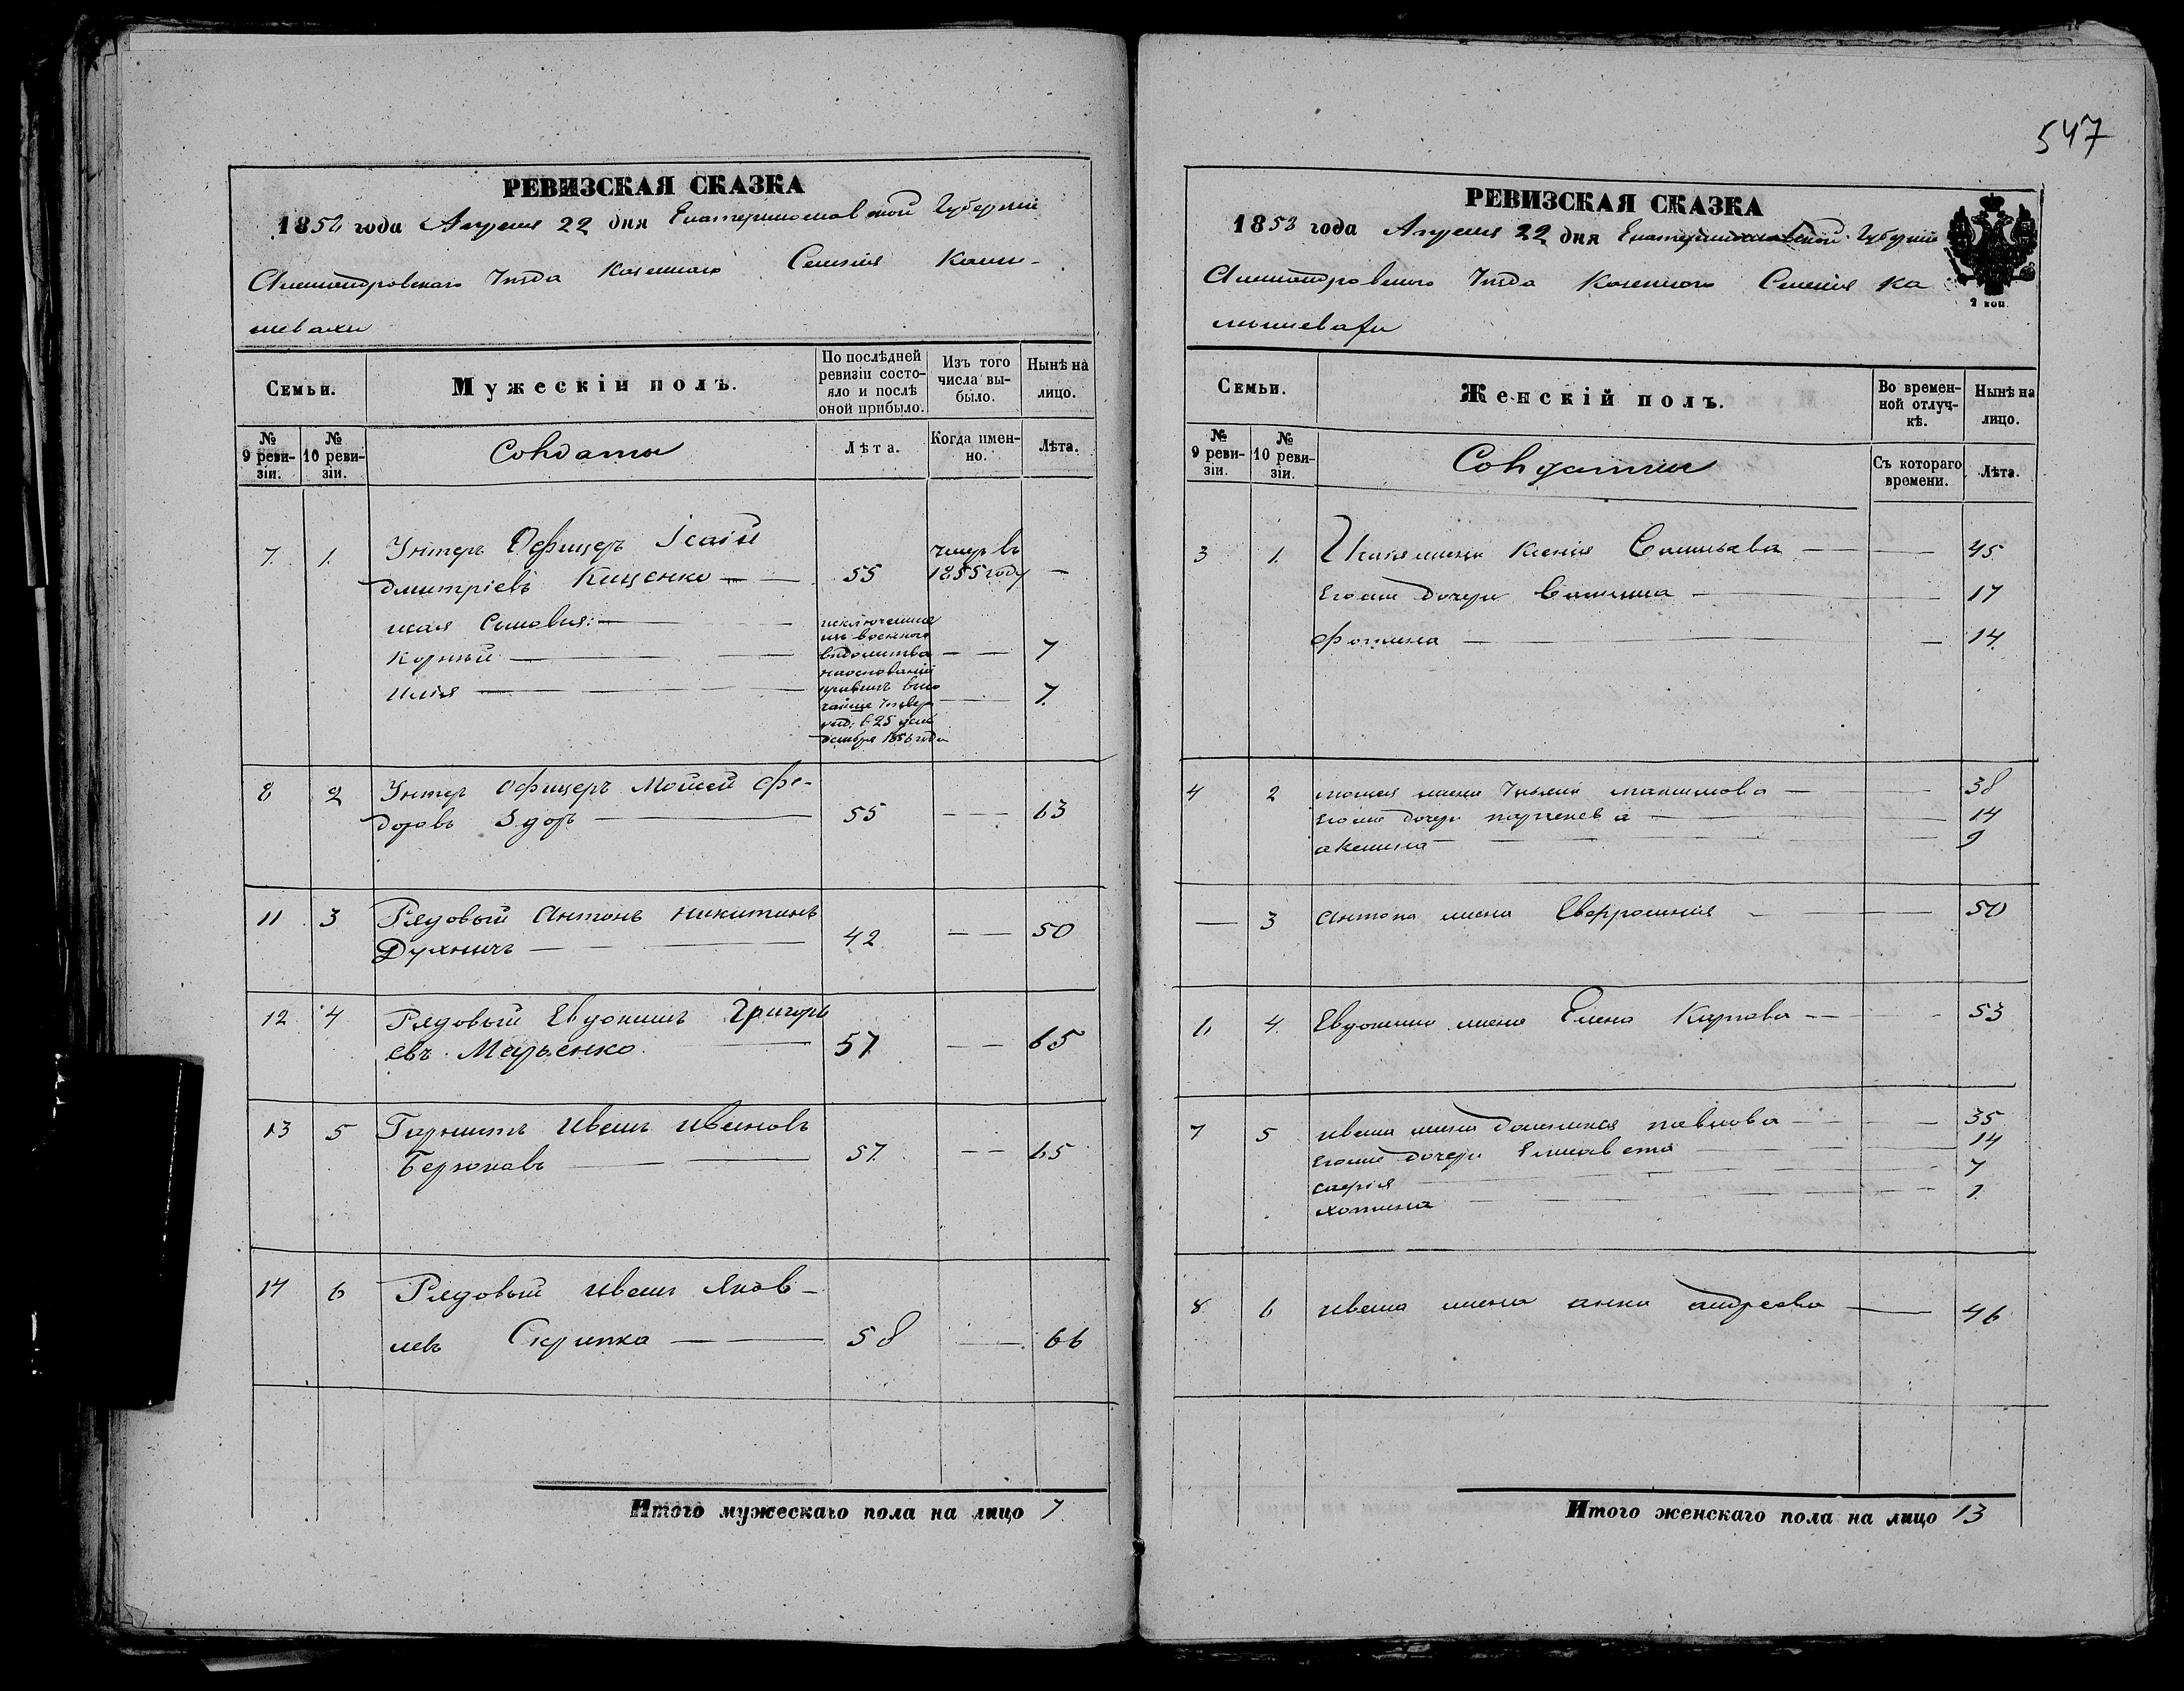 РЕВИЗСКАЯ СКАЗКА
1858 года Апреля 22 дня Екатеринославской Губернiи
Александровскаго Уѣзда Казеннаго Селенiя Камы-
шевахи
Семьи.
Мужескiй полъ.
По послѣдней ревизiи состо-
яло и послѣ оной прибыло.
Изъ того числа вы-
было.
Нынѣ на лицо.
№ 9 реви-
зiи.
№ 10 реви-
зiи.
Солдаты
Лѣта.
Когда имен-
но.
Лѣта.
7. 1. Унтеръ Офицеръ Iсаiй умеръ въ
Дмитрiевъ Кищенко 55 1855 году —
Исаiя Сыновья: исключенные
изъ военного
Корнѣй вѣдомства 7
на основанiи
Илiя 7.
1856 года
8 2 Унтер Офицеръ Мойсей Фе-
доровъ Здоръ 55 63
11 3 Рядовый Антонъ Никитинъ
Духничъ 42 50
12 4 Рядовый Евдокимъ Григорь
евъ Марьенко 57 65
13 5 Иванъ Ивановъ
Берюковъ 57 65
14 6 Рядовый Иванъ Яков-
левъ Скрипка 58 66
Итого мужескаго пола на лицо 7
547
РЕВИЗСКАЯ СКАЗКА
1858 года Апреля 22 дня Екатеринославской Губернiи
Александровскаго Уѣзда Казенного Селенiя Ка
мышевахи
2 коп.
Семьи.
Женскiй полъ.
Во времен-
ной отлуч-
кѣ.
Нынѣ на лицо.
№ 9 реви-
зiи.
№ 10 реви-
зiи.
Солдатки
Съ котораго времени.
Лѣта.
3 1. жена Ксенiя Савельева 45
Его же дочери 17
Фотина 14
4 2 Мойсея жена Ульяна Максимова 38
Его же дочери Парскева 14
Аксинiа 9
— 3 Антона жена Евфросинiя 50
6 4. Евдокима жена Елена Карпова 53
7 5 Ивана жена Домникия Павлова 35
Его же дочери Елисавета 14
Софiя 7
Хотина 1
8 6 Ивана жена Анна Андреева 46
Итого женскаго пола на лицо 13